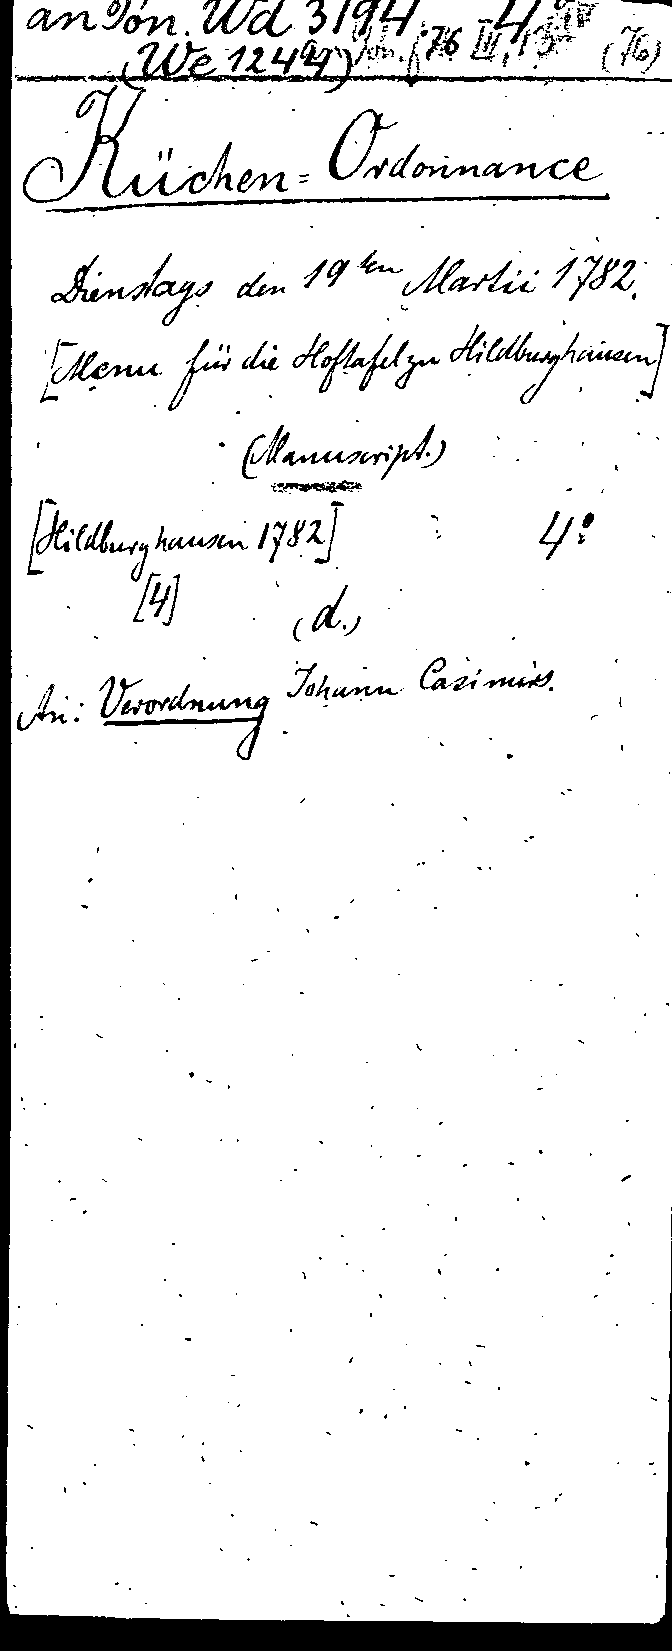 an Ton. Wd 3194 4°
(We 1249) 76 III, 13 (76)
Küchen=Ordonnance
Dienstags den 19ten Martii 1782.
[Menu für die Hoftafel zu Hildburghausen]
(Manuscript.)
[Hildburghausen 1782] 4°
[4] (d.)
An: Verordnung Johann Casimirs.